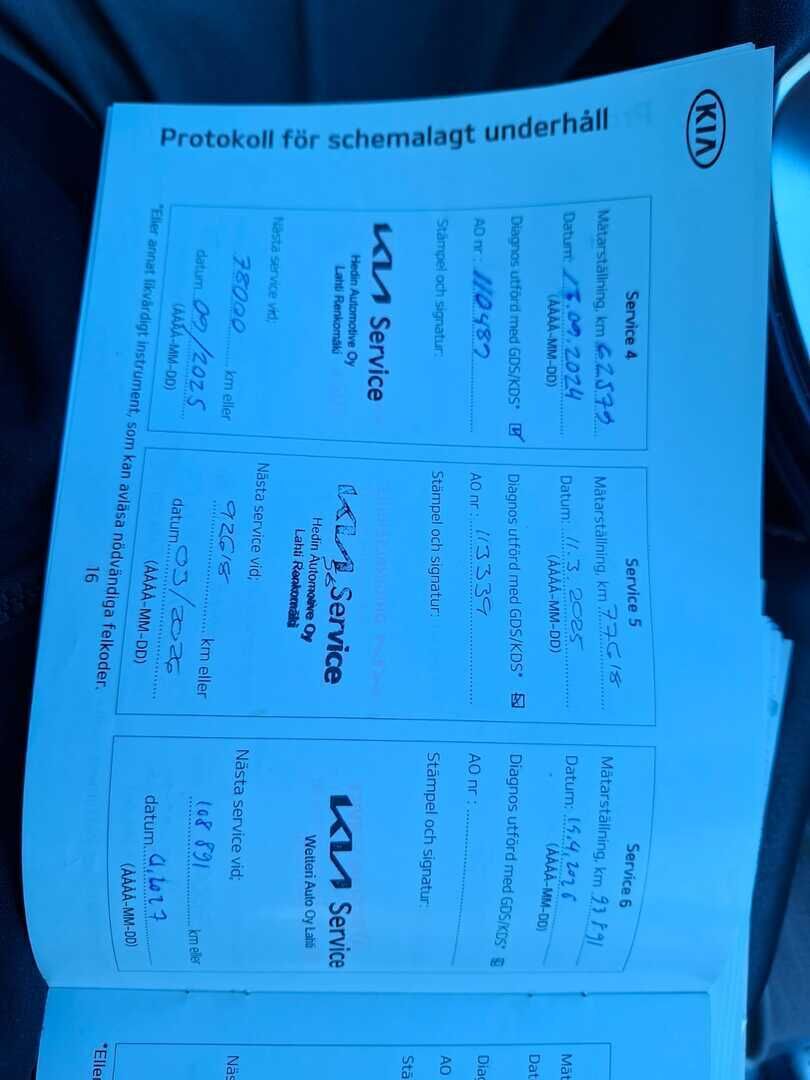 KIA
Protokoll för schemalagt underhåll
Service 4
Mätarställning, km 62579
Datum: 13.09.2024
(ÅÅÅÅ-MM-DD)
Diagnos utförd med GDS/KDS*
AO nr : 110489
Stämpel och signatur:
KIA Service
Hedin Automotive Oy
Lahti Renkomäki
Nästa service vid;
78000 km eller
datum: 09/2025
(ÅÅÅÅ-MM-DD)
Service 5
Mätarställning, km 77618
Datum: 11.3.2025
(ÅÅÅÅ-MM-DD)
Diagnos utförd med GDS/KDS*
AO nr : 113339
Stämpel och signatur:
KIA Service
Hedin Automotive Oy
Lahti Renkomäki
Nästa service vid;
92618 km eller
datum 03/2026
(ÅÅÅÅ-MM-DD)
Service 6
Mätarställning, km 93891
Datum: 15.4.2026
(ÅÅÅÅ-MM-DD)
Diagnos utförd med GDS/KDS*
AO nr :
Stämpel och signatur:
KIA Service
Wetteri Auto Oy Lahti
Nästa service vid;
108 891 km eller
datum. 4.2027
(ÅÅÅÅ-MM-DD)
*Eller annat likvärdigt instrument, som kan avläsa nödvändiga felkoder.
16
Mät
Dat
Diag
AO
Stä
Näs
*Eller